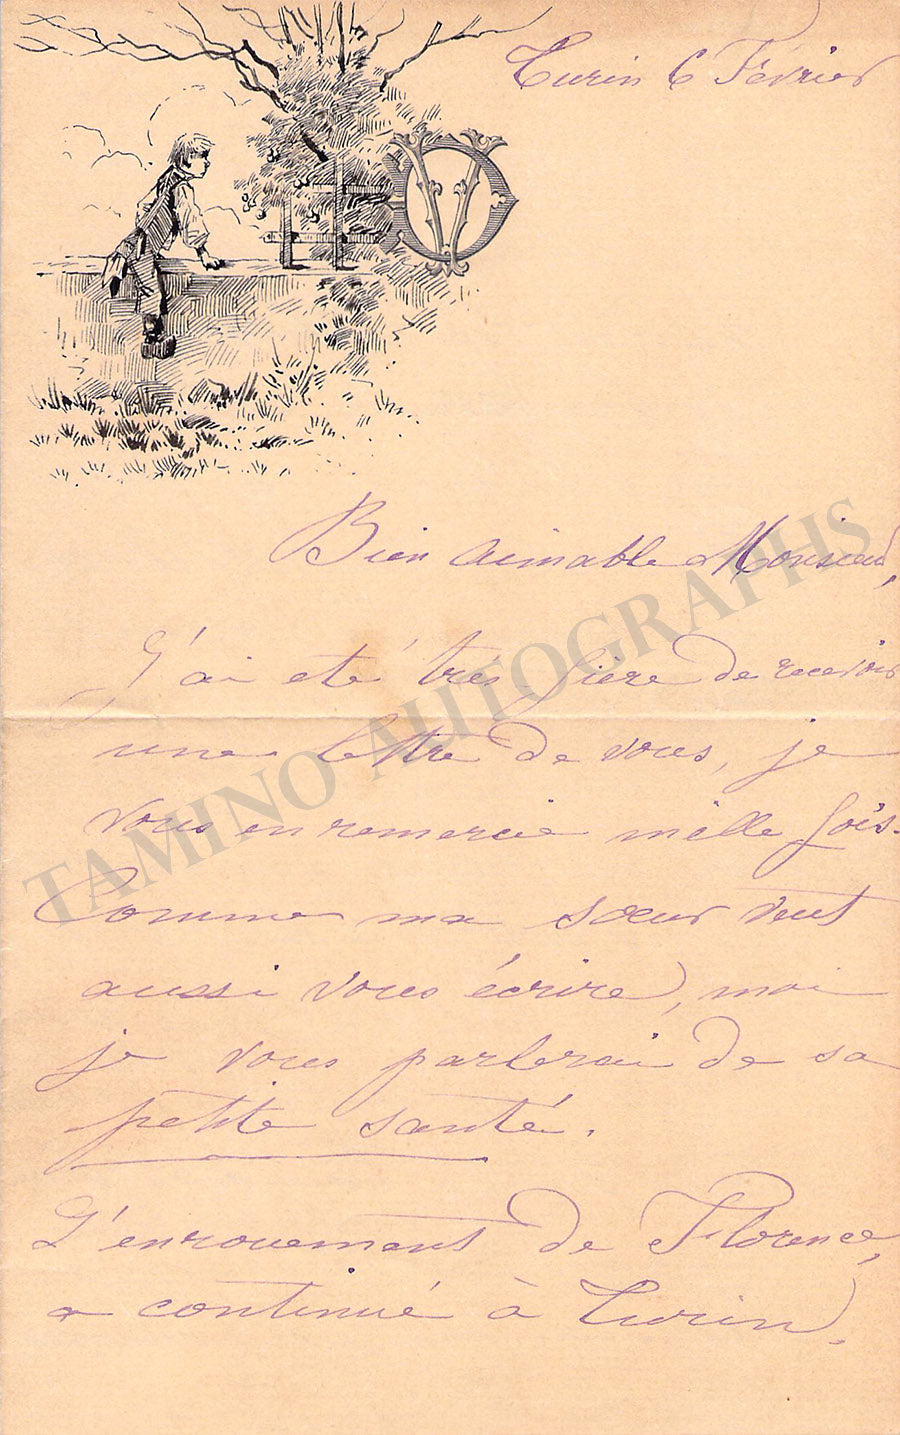 Turin 6 Février
Bien aimable Monsieur,
J'ai eté très fière de recevoir
une lettre de vous, je
vous en remercie mille fois.
Comme ma sœur veut
aussi vous écrire, moi
je vous parlerai de sa
petite santé.
L'enrouement de Florence,
a continué à Turin,
TAMINO AUTOGRAPHS